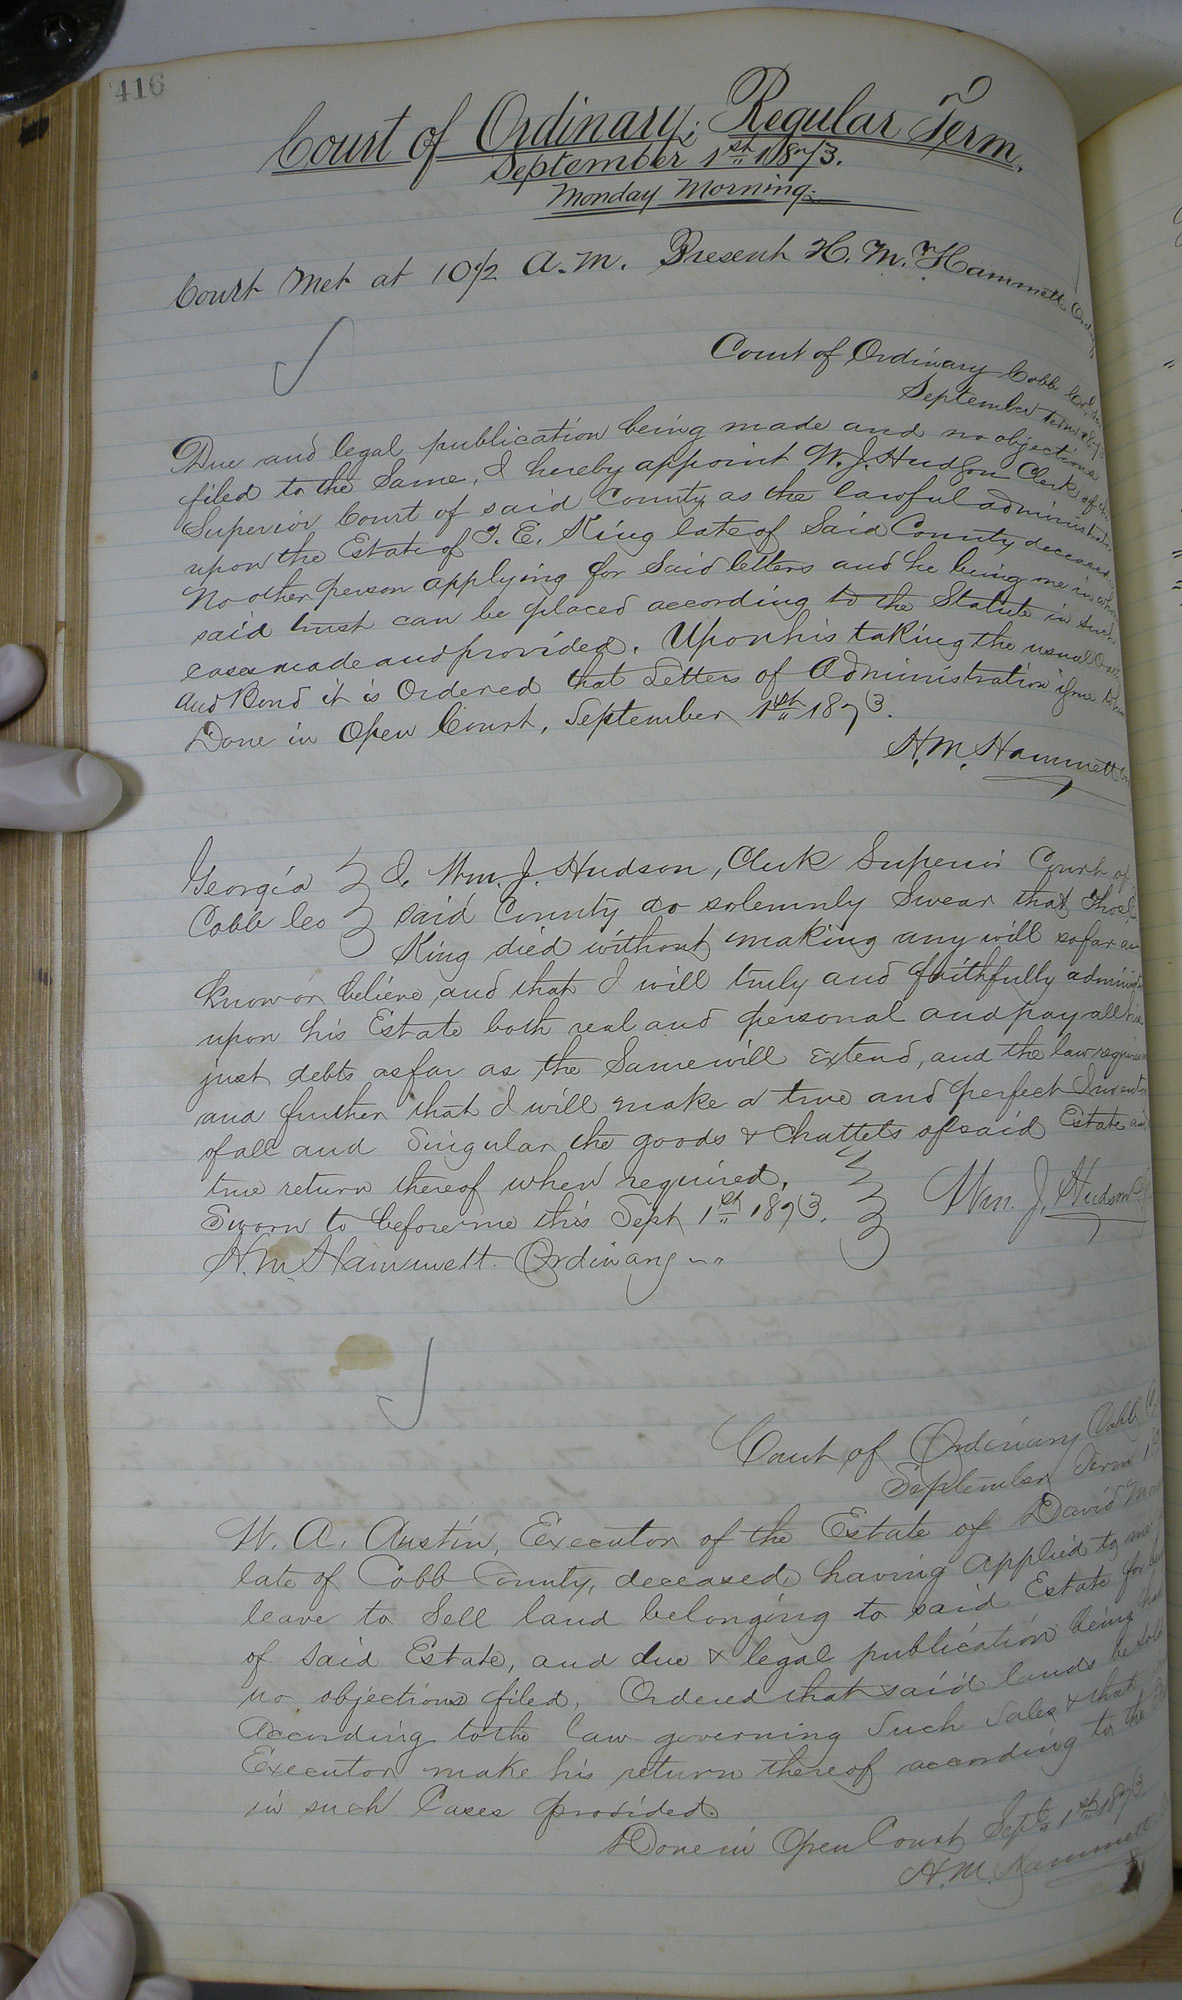 416
Court of Ordinary, Regular Term.
September 1st 1873.
Monday Morning.
Court Met at 10 1/2 A.M. Present H. M. Hammett
Court of Ordinary Cobb Co.
September Term
Due and legal publication being made and no objections
filed to the Same, I hereby appoint W. J. Hudson Clerk of
Superior Court of said County as the lawful
upon the Estate of T. E. King late of Said County deceased
No other person applying for Said letters and he being one in
said trust can be placed according to the Statute in such
cases made and provided. Upon his taking the usual
and Bond it is Ordered that Letters of Administration
Done in Open Court, September 1st 1873.
H. M. Hammett
Georgia I, Wm. J. Hudson, Clerk Superior Court of
Cobb Co said County do solemnly Swear that
King died without making any will so far as
know or believe, and that I will truly and faithfully
upon his Estate both real and personal and pay all
just debts as far as the Same will extend, and the law
and further that I will make a true and perfect
of all and Singular the goods & Chattels of said Estate
true return thereof when required.
Sworn to before me this Sept 1st 1873. Wm. J. Hudson
H. M. Hammett Ordinary
Court of Ordinary Cobb
September Term
W. A. Austin, Executor of the Estate of David
late of Cobb County, deceased, having applied to me
leave to Sell land belonging to said Estate for
of said Estate, and due & legal publication being
no objections filed. Ordered that said lands be
According to the law governing Such Sales & that
Executor make his return thereof according to the
in such Cases provided.
Done in Open Court Sept 1st 1873
H. M. Hammett